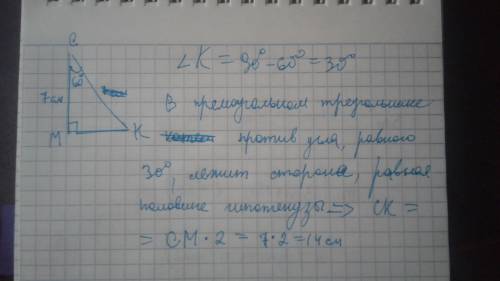 C
60°
7см
M
K
∠K = 90° - 60° = 30°
В прямоугольном треугольнике
против угла, равного
30°, лежит сторона, равная
половине гипотенузы => CK =
= CM · 2 = 7 · 2 = 14 см